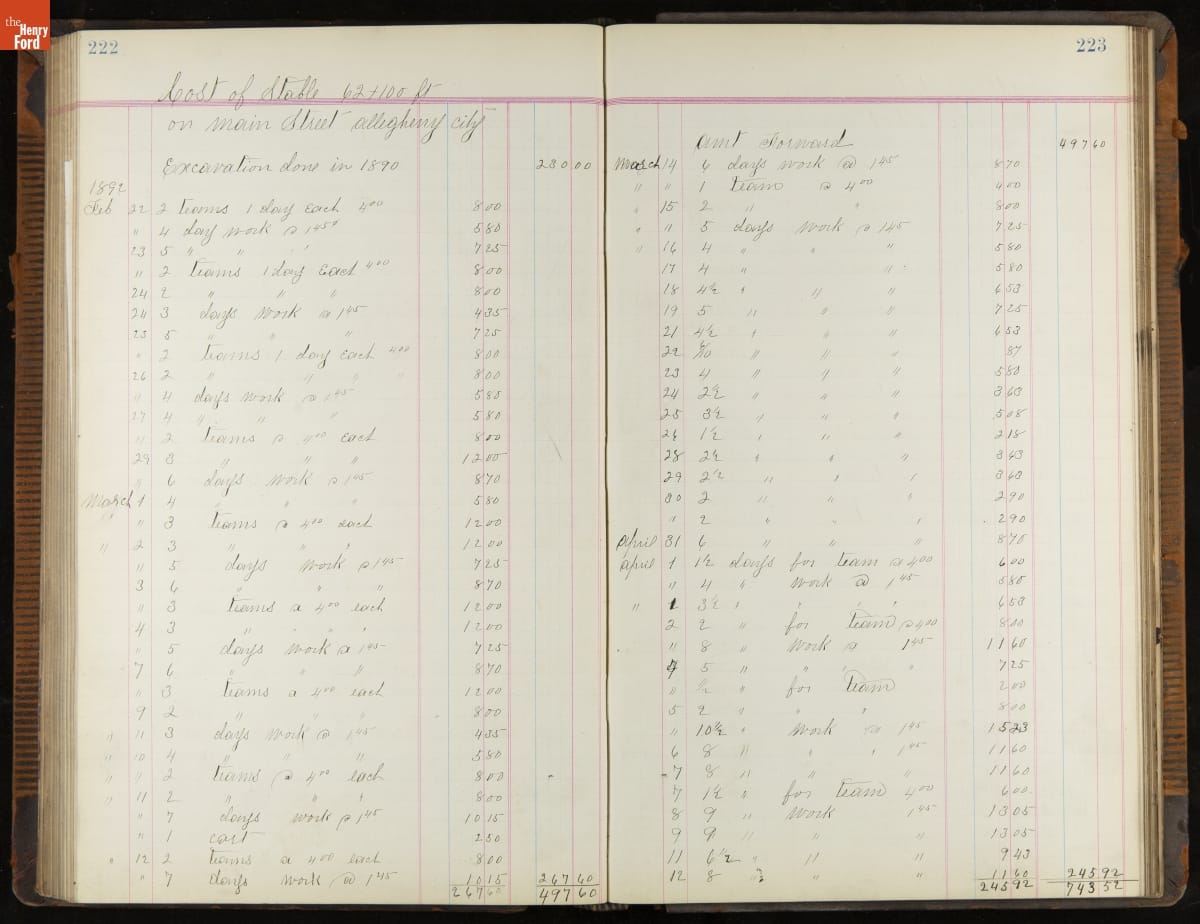 the Henry Ford
222
Cost of Stable 62+100 ft
on main Street allegheny city
Excavation done in 1890 230.00
1892
Feb 22 2 teams 1 day Each 4 00 8 00
" 4 day work @ 1 45 5 80
23 5 " " " 7 25
" 2 teams 1 day Each 4 00 8 00
24 2 " " " 8 00
24 3 days work @ 1 45 4 35
25 5 " " " 7 25
" 2 teams 1 day Each 4 00 8 00
26 2 " " " " 8 00
" 4 days work @ 1 45 5 80
27 4 " " " 5 80
" 2 teams @ 4 00 each 8 00
29 3 " " " 12 00
" 6 days work @ 1 45 8 70
March 1 4 " " " 5 80
" " 3 teams @ 4 00 each 12 00
" 2 3 " " " 12 00
" 5 days work @ 1 45 7 25
3 6 " " " 8 70
" 3 teams a 4 00 each 12 00
4 3 " " " 12 00
" 5 days work a 1 45 7 25
7 6 " " " 8 70
" 3 teams a 4 00 each 12 00
9 2 " " " 8 00
" 11 3 days work @ 1 45 4 35
" 10 4 " " " 5 80
" " 2 teams @ 4 00 each 8 00
" 11 2 " " " 8 00
" 7 days work @ 1 45 10 15
" 1 cart 2 50
" 12 2 teams a 4 00 each 8 00
" 7 days work @ 1 45 10 15 267 60
267 60 497 60
223
amt Forward 497 60
March 14 6 days work @ 1 45 8 70
" " 1 team @ 4 00 4 00
" 15 2 " " 8 00
" " 5 days work @ 1 45 7 25
" 16 4 " " " 5 80
17 4 " " 5 80
18 4 1/2 " " " 6 53
19 5 " " " 7 25
21 4 1/2 " " " 6 53
22 6/10 " " " 87
23 4 " " " 5 80
24 2 1/2 " " " 3 63
25 3 1/2 " " " 5 08
26 1 1/2 " " " 2 18
28 2 1/2 " " " 3 63
29 2 1/2 " " " 3 63
30 2 " " " 2 90
" 2 " " " 2 90
April 31 6 " " " 8 70
April 1 1 1/2 days for team @ 4 00 6 00
" 4 " Work @ 1 45 5 80
" 1 3 1/2 " " " " 6 53
2 2 " for team @ 4 00 8 00
" 8 " Work a 1 45 11 60
4 5 " " " " 7 25
" 1/2 " for team 2 00
5 2 " " " 8 00
" 10 1/2 " Work @ 1 45 15 23
6 8 " " " 1 45 11 60
7 8 " " " 11 60
7 1 1/2 " for team 4 00 6 00
8 9 " Work 1 45 13 05
9 9 " " " 13 05
11 6 1/2 " " " 9 43
12 8 " " " 11 60 245 92
245 92 743 52